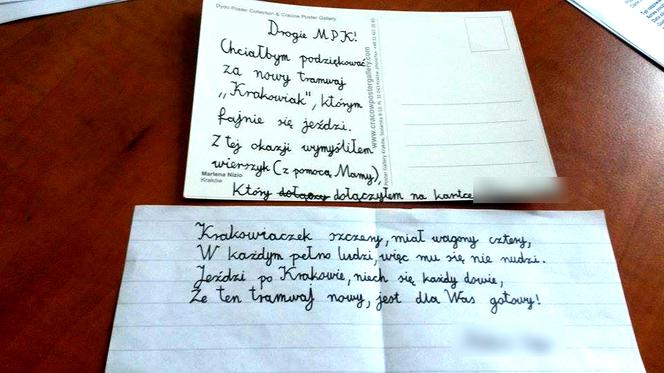 Dydo Poster Collection & Cracow Poster Gallery
Drogie MPK!
Chciałbym podziękować
za nowy tramwaj
,,Krakowiak", którym
fajnie się jeździ.
Z tej okazji wymyśliłem
wierszyk (z pomocą Mamy),
Który dołączyłem na kartce
Marlena Nizio
Kraków
www.cracowpostergallery.com
Krakowiaczek szczery, miał wagony cztery,
W każdym pełno ludzi, więc mu się nie nudzi.
Jeździ po Krakowie, niech się każdy dowie,
Że ten tramwaj nowy, jest dla Was gotowy!